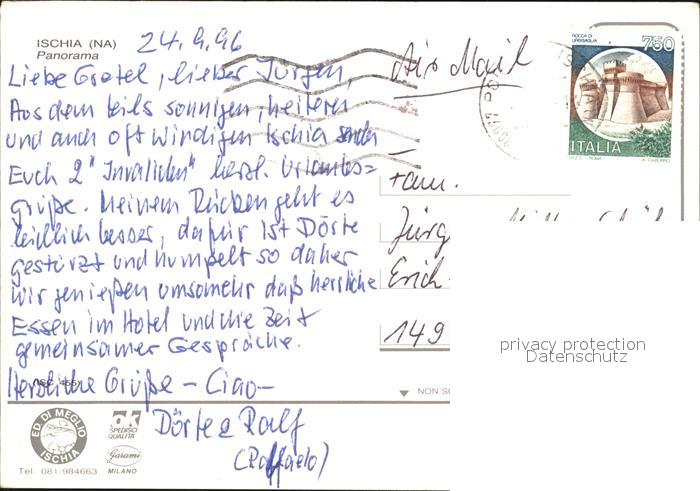 ISCHIA (NA)
Panorama
24.9.96
Liebe Gretel, lieber Jürgen,
Aus dem teils sonnigen, heiteren
und auch oft windigen Ischia senden
Euch 2 "Invaliden" herzl. Urlaubs=
grüße. Meinem Rücken geht es
leidlich besser, dafür ist Dörte
gestürzt und humpelt so daher
Wir genießen umsomehr das herrliche
Essen im Hotel und die Zeit
gemeinsamer Gespräche.
Herzliche Grüße – Ciao –
Dörte & Ralf
(Raffaelo)
Air Mail
Fam.
Jürg
Erich
149
ROCCA DI
URBISAGLIA
750
ITALIA
privacy protection
Datenschutz
NON SO
ED. DI MEGLIO
ISCHIA
Tel. 081/984663
ak
SPEDISCI
QUALITA'
Garami
MILANO